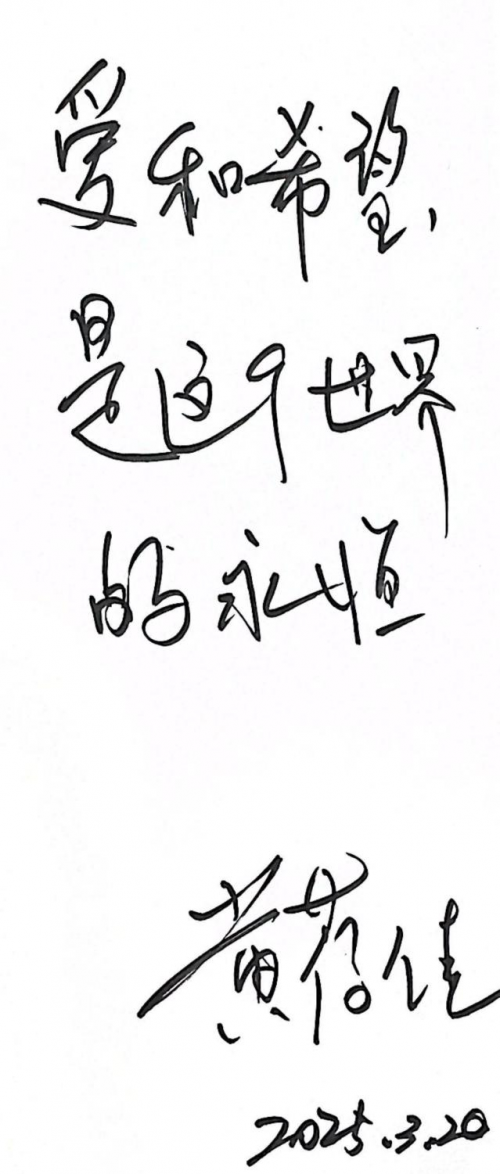 爱和希望,
是这个世界
的永恒
黄蓓佳
2025.3.20